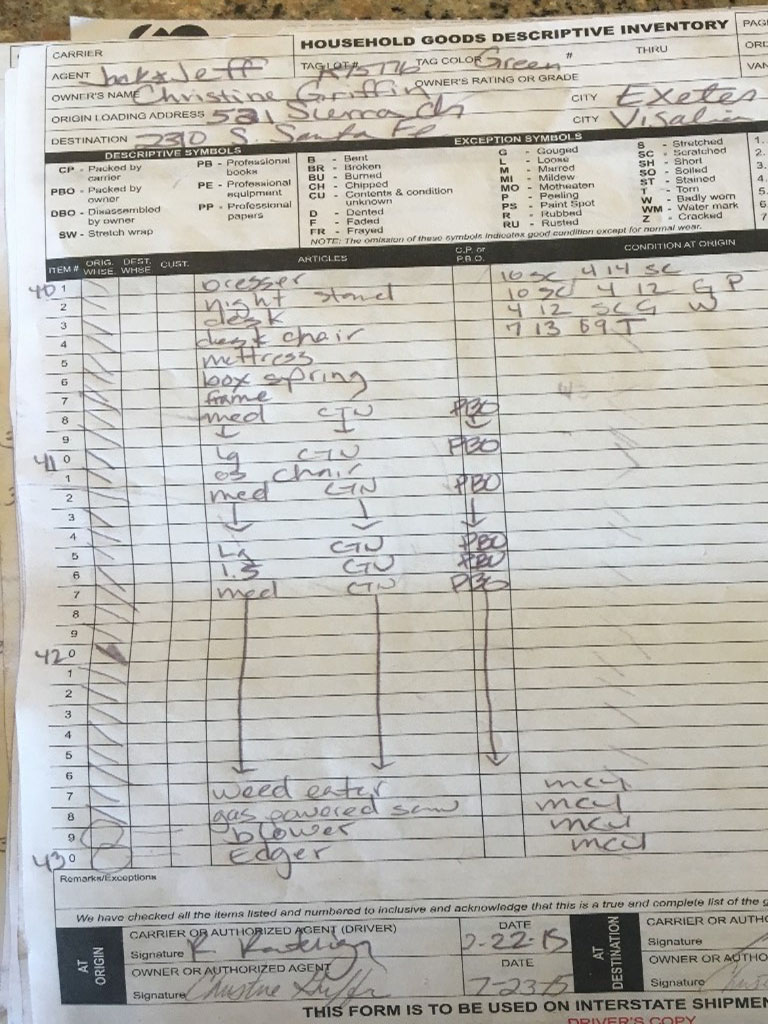 HOUSEHOLD GOODS DESCRIPTIVE INVENTORY
PAG
CARRIER
TAG LOT# TAG COLOR Green # THRU
ORD
AGENT & Jeff
VAN
OWNER'S NAME Christine Griffin OWNER'S RATING OR GRADE
CITY Exeter
ORIGIN LOADING ADDRESS 521 Sierra
CITY Visalia
DESTINATION 2310 S. Santa Fe
DESCRIPTIVE SYMBOLS
EXCEPTION SYMBOLS
CP - Packed by carrier
PBO - Packed by owner
DBO - Disassembled by owner
SW - Stretch wrap
PB - Professional books
PE - Professional equipment
PP - Professional papers
B - Bent
BR - Broken
BU - Burned
CH - Chipped
CU - Contents & condition unknown
D - Dented
F - Faded
FR - Frayed
G - Gouged
L - Loose
M - Marred
MI - Mildew
MO - Motheaten
P - Peeling
PS - Paint Spot
R - Rubbed
RU - Rusted
S - Stretched
SC - Scratched
SH - Short
SO - Soiled
ST - Stained
T - Torn
W - Badly worn
WM - Water mark
Z - Cracked
1.
2.
3.
4.
5.
6
7
NOTE: The omission of these symbols indicates good condition except for normal wear.
ITEM # ORIG. WHSE. DEST. WHSE. CUST. ARTICLES C.P. or P.B.O. CONDITION AT ORIGIN
40 1 Dresser 10 SC 4 14 SC
2 night stand 10 SC 4 12 G P
3 desk 4 12 SC G W
4 desk chair 7 13 69 T
5 mettress
6 box spring
7 frame
8 med CTN PBO
9
41 0 Lg CTN PBO
1 os chair
2 med CTN PBO
3
4
5 Lg CTN PBO
6 1.5 CTN PBO
7 med CTN PBO
8
9
42 0
1
2
3
4
5
6
7 weed eater mcu
8 gas powered saw mcu
9 blower mcu
43 0 Edger mcu
Remarks/Exceptions
We have checked all the items listed and numbered to inclusive and acknowledge that this is a true and complete list of the g
AT ORIGIN
CARRIER OR AUTHORIZED AGENT (DRIVER)
Signature
DATE
7-22-15
OWNER OR AUTHORIZED AGENT
Signature Christine Griffin
DATE
7-23-15
AT DESTINATION
CARRIER OR AUTHO
Signature
OWNER OR AUTHO
Signature
THIS FORM IS TO BE USED ON INTERSTATE SHIPMEN
DRIVER'S COPY